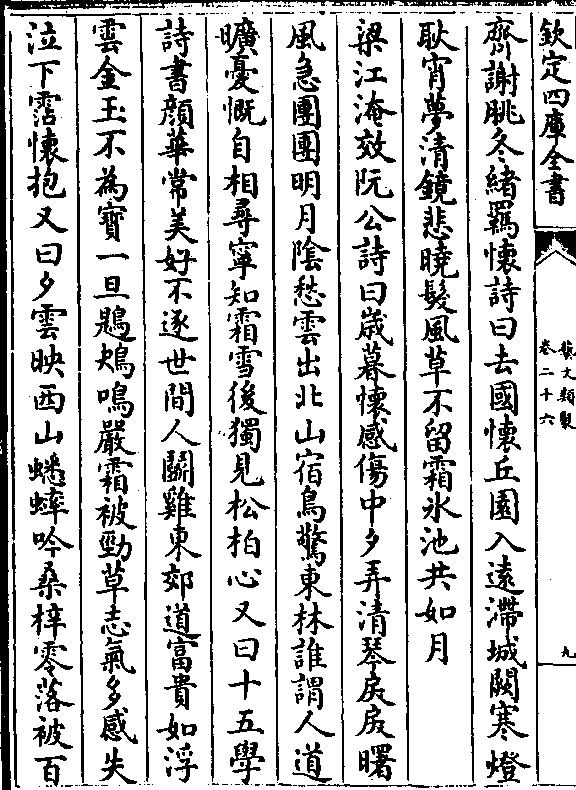 欽定四庫全書
藝文類聚
卷二十六
九
齊謝朓冬緒羈懷詩曰去國懷丘園入遠滯城闕寒燈
耿宵夢清鏡悲曉髮風草不留霜氷池共如月
梁江淹效阮公詩曰歲暮懷感傷中夕弄清琴戾戾曙
風急團團明月陰愁雲出北山宿鳥驚東林誰謂人道
曠憂慨自相尋寧知霜雪後獨見松柏心又曰十五學
詩書顔華常美好不逐世間人鬭雞東郊道富貴如浮
雲金玉不為寶一旦鶗鴂鳴嚴霜被勁草志氣多感失
泣下霑懷抱又曰夕雲映西山蟋蟀吟桑梓零落被百